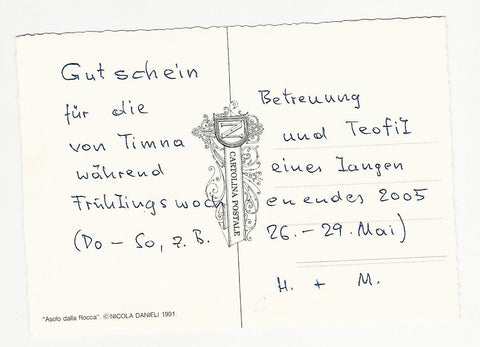 Gutschein
für die Betreuung
von Timna und Teofil
während eines langen
Frühlingswochenendes 2005
(Do – So, z.B. 26. – 29. Mai)
H. + M.
CARTOLINA POSTALE
"Asolo dalla Rocca". ©NICOLA DANIELI 1991.